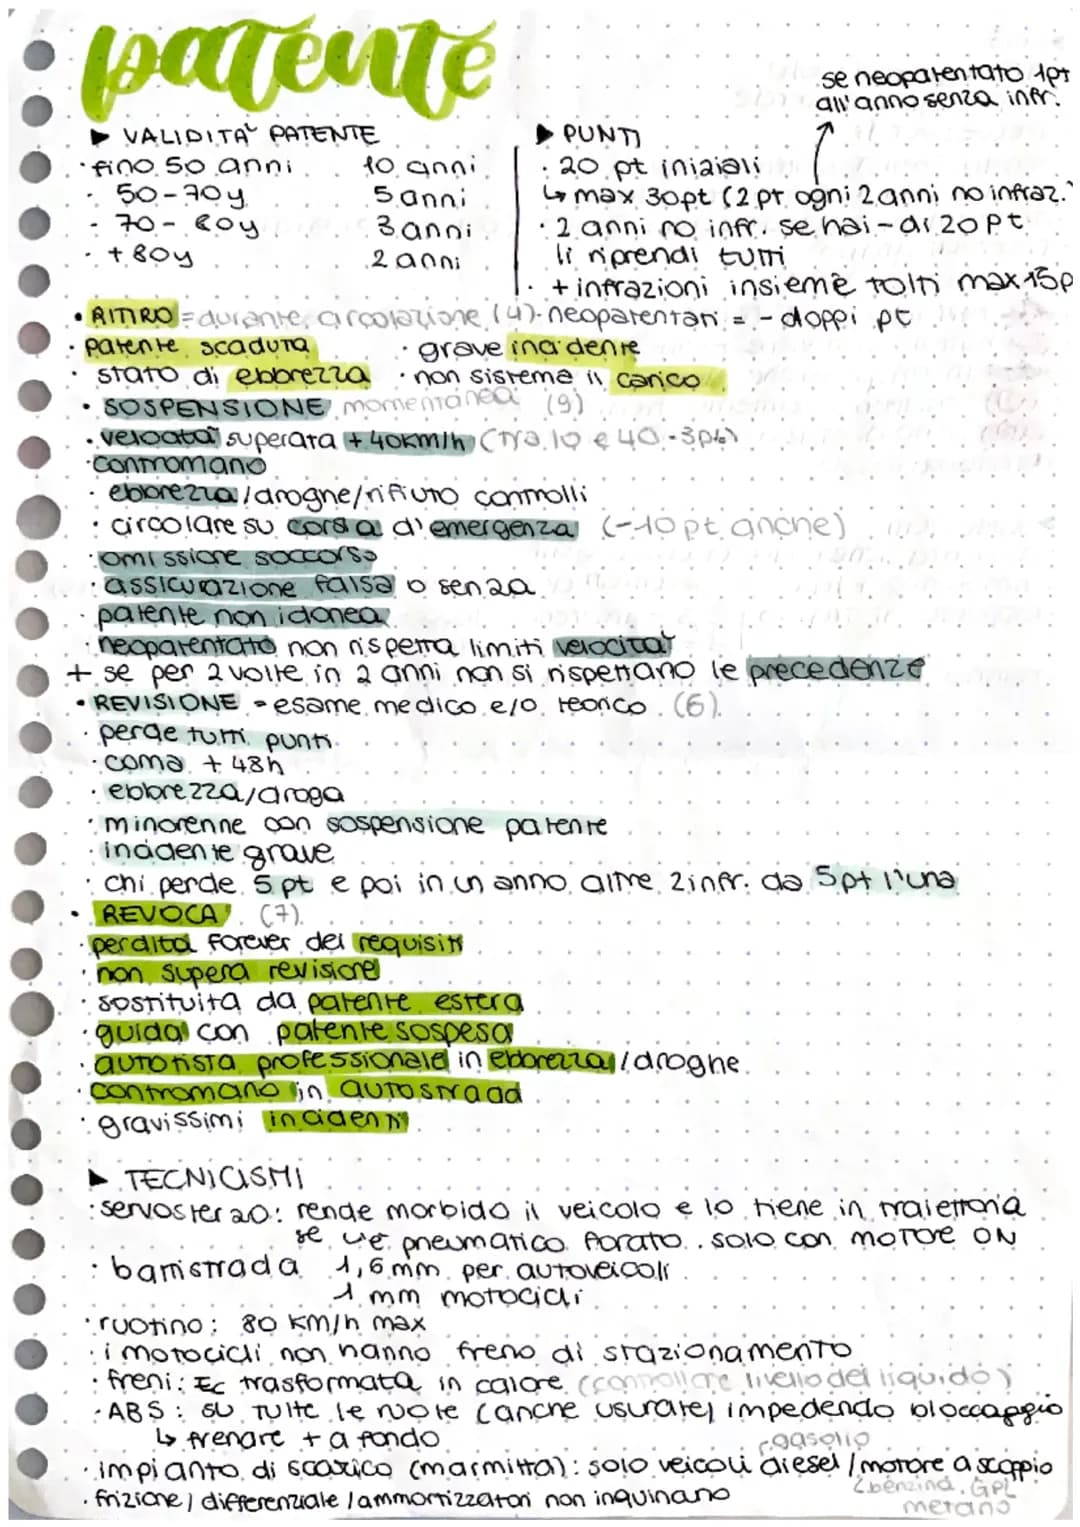 patente
se neopatentato 1pt
all'anno senza infr.
▶ VALIDITA' PATENTE
· fino 50 anni 10 anni
· 50-70y 5 anni
· 70-80y 3 anni
· +80y 2 anni
▶ PUNTI
· 20 pt iniziali
↳ max 30pt (2 pt ogni 2 anni no infraz.)
· 2 anni no infr. se hai - di 20 pt
li riprendi tutti
· + infrazioni insieme tolti max 15p
• RITIRO = durante circolazione (4) · neopatentati = - doppi pt
· patente scaduta · grave incidente
· stato di ebbrezza · non sistema il carico
• SOSPENSIONE momentanea (9)
· velocità superata + 40km/h (tra 10 e 40 - 3pt)
· contromano
· ebbrezza/droghe/rifiuto controlli
· circolare su corsia d'emergenza (-10 pt anche)
· omissione soccorso
· assicurazione falsa o senza
· patente non idonea
· neopatentato non rispetta limiti velocità
+ se per 2 volte in 2 anni non si rispettano le precedenze
• REVISIONE = esame medico e/o teorico (6)
· perde tutti punti
· coma + 48h
· ebbrezza/droga
· minorenne con sospensione patente
· incidente grave
· chi perde 5 pt e poi in un anno altre 2 infr. da 5pt l'una
• REVOCA (7)
· perdita forever dei requisiti
· non supera revisione
· sostituita da patente estera
· guida con patente sospesa
· autotista professionale in ebbrezza/droghe
· contromano in autostrada
· gravissimi incidenti
▶ TECNICISMI
· servosterzo: rende morbido il veicolo e lo tiene in traiettoria
se c'è pneumatico forato. solo con motore ON
· battistrada 1,6 mm per autoveicoli
1 mm motocicli
· ruotino: 80 km/h max
· i motocicli non hanno freno di stazionamento
· freni: Ec trasformata in calore (controllare livello del liquido)
· ABS: su tutte le ruote (anche usurate) impedendo bloccaggio
↳ frenare + a fondo
gasolio
· impianto di scarico (marmitta): solo veicoli diesel/motore a scoppio
benzina, GPL
metano
· frizione/differenziale/ammortizzatori non inquinano